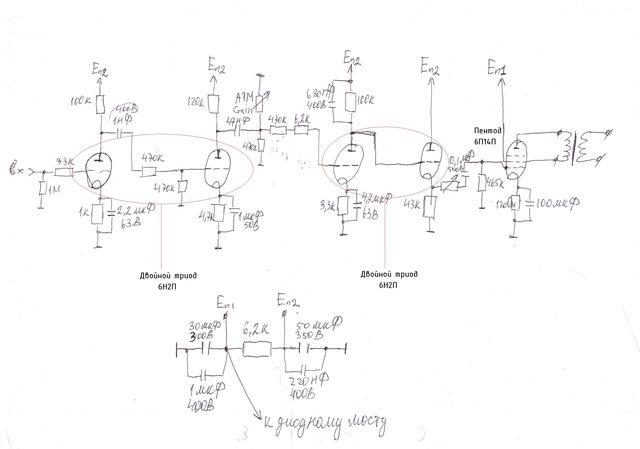 Еп2
100К
400В
1НФ
Еп2
120К
А1М
Gain
47НФ
470К
6,2К
470К
Еп2
680пФ
400В
100К
Еп2
Еп1
Пентод
6П14П
Вх
33К
1М
470К
470К
1К
2,2мкФ
63В
4,7К
1мкФ
50В
3,3К
4,7мкФ
63В
43К
0,1мкФ
500В
465К
120Ом
100мкФ
Двойной триод
6Н2П
Двойной триод
6Н2П
Еп1
Еп2
30мкФ
300В
6,2К
50мкФ
350В
1мкФ
400В
220НФ
400В
к диодному мосту